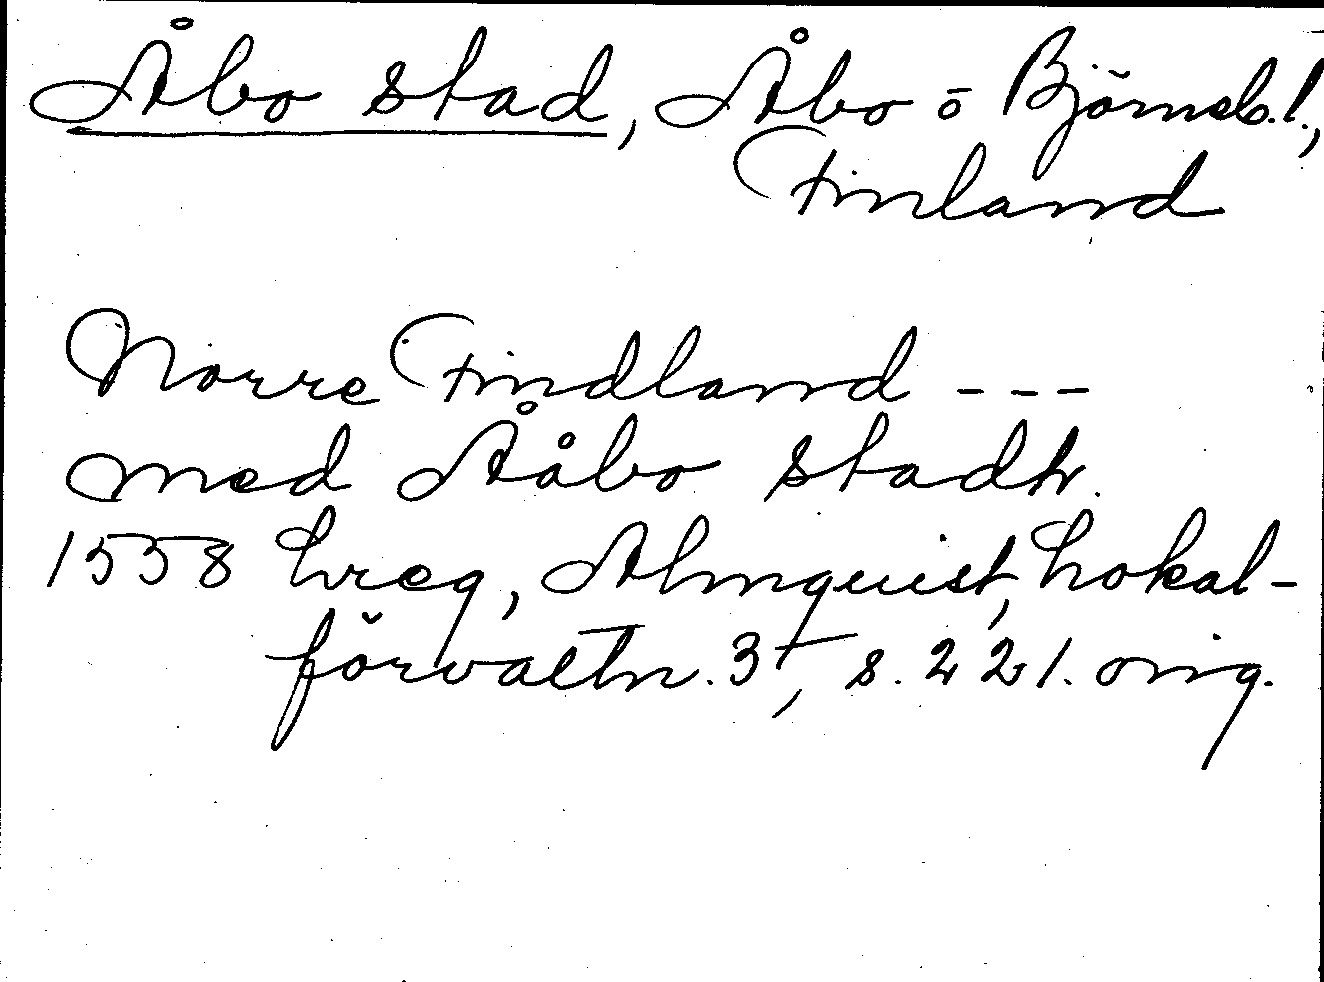 Åbo stad, Åbo o Björneb.l.,
Finland
Norre Findland ---
med Ååbo stadh.
1558 Lreg, Almquist, Lokal-
förvaltn. 3, s. 221. orig.